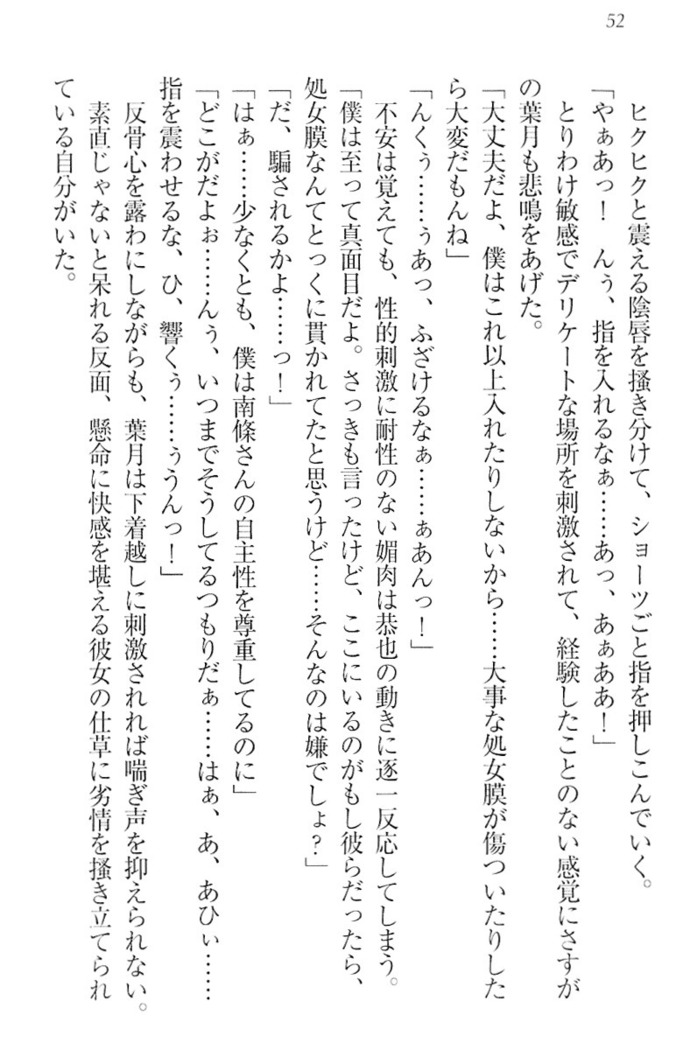 52
ヒクヒクと震える陰唇を掻き分けて、ショーツごと指を押しこんでいく。
「やぁあっ！　んぅ、指を入れるなぁ……あっ、あぁああ！」
とりわけ敏感でデリケートな場所を刺激されて、経験したことのない感覚にさすが
の葉月も悲鳴をあげた。
「大丈夫だよ、僕はこれ以上入れたりしないから……大事な処女膜が傷ついたりした
ら大変だもんね」
「んくぅ……ぅあっ、ふざけるなぁ……ぁあんっ！」
不安は覚えても、性的刺激に耐性のない媚肉は恭也の動きに逐一反応してしまう。
「僕は至って真面目だよ。さっきも言ったけど、ここにいるのがもし彼らだったら、
処女膜なんてとっくに貫かれてたと思うけど……そんなのは嫌でしょ？」
「だ、騙されるかよ……っ！」
「はぁ……少なくとも、僕は南條さんの自主性を尊重してるのに」
「どこがだよぉ……んぅ、いつまでそうしてるつもりだぁ……はぁ、あ、あひぃ……
指を震わせるな、ひ、響くぅ……ぅうんっ！」
反骨心を露わにしながらも、葉月は下着越しに刺激されれば喘ぎ声を抑えられない。
素直じゃないと呆れる反面、懸命に快感を堪える彼女の仕草に劣情を掻き立てられ
ている自分がいた。